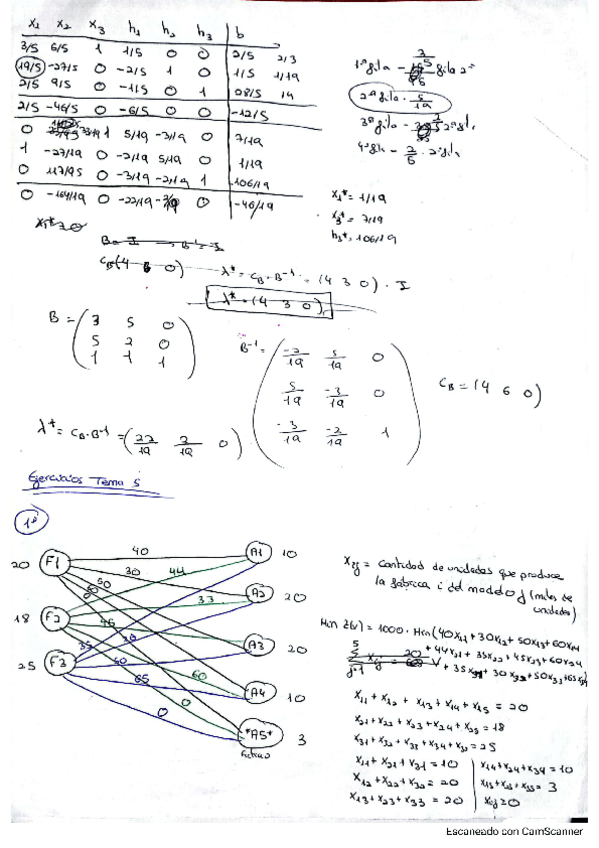 x₁ x₂ x₃ h₁ h₂ h₃ b
3/5 6/5 1 1/5 0 0 2/5 2/3
19/5 -27/5 0 -2/5 1 0 1/5 1/19
2/5 9/5 0 -1/5 0 1 28/5 14
2/5 -46/5 0 -6/5 0 0 -12/5
0 1 5/19 -3/19 0 7/19
1 -27/19 0 -2/19 5/19 0 1/19
0 117/95 0 -3/19 -2/19 1 106/19
0 -164/19 0 -22/19 0 -46/19
1ª fila - fila 2ª
2ª fila · 5/19
3ª fila - 2ª fila
4ª fila - 2/5 · 2ª fila
x₁* = 1/19
x₃* = 7/19
h₃* = 106/19
B = I B⁻¹ = I
C_B (4 6 0) λ* = C_B · B⁻¹ = (4 3 0) · I
λ* = (4 3 0)
B = ( 3 5 0
5 2 0
1 1 1 )
B⁻¹ = ( -2/19 5/19 0
5/19 -3/19 0
-3/19 -2/19 1 )
C_B = (4 6 0)
λ* = C_B · B⁻¹ = (22/19 2/19 0)
Ejercicios Tema 5
1º
20 F1 40 A1 10
30 44
50
18 F2 33 A2 20
45
25 F3 35 30 A3 20
50 60 A4 10
65
0 0 *A5* 3
ficticio
xij = cantidad de unidades que produce
la fábrica i del modelo j (miles de
unidades)
Min Z(x) = 1000 · Min (40x₁₁ + 30x₁₂ + 50x₁₃ + 60x₁₄
+ 44x₂₁ + 35x₂₂ + 45x₂₃ + 60x₂₄
+ 35x₃₁ + 30x₃₂ + 50x₃₃ + 65x₃₄)
x₁₁ + x₁₂ + x₁₃ + x₁₄ + x₁₅ = 20
x₂₁ + x₂₂ + x₂₃ + x₂₄ + x₂₅ = 18
x₃₁ + x₃₂ + x₃₃ + x₃₄ + x₃₅ = 25
x₁₁ + x₂₁ + x₃₁ = 10 x₁₄ + x₂₄ + x₃₄ = 10
x₁₂ + x₂₂ + x₃₂ = 20 x₁₅ + x₂₅ + x₃₅ = 3
x₁₃ + x₂₃ + x₃₃ = 20 xij ≥ 0
Escaneado con CamScanner